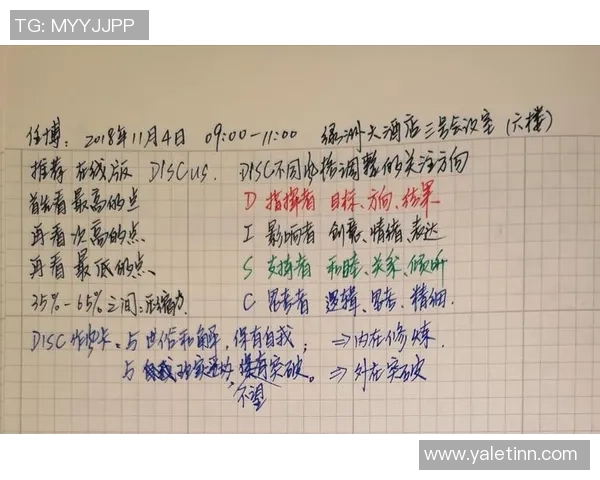 TG: MYYJJPP
任博: 2018年11月4日 09:00-11:00 绿洲大酒店三号会议室 (六楼)
推荐在线版 DISCUS. DISC不同风格调整的关注方向
首先看最高的点 D 指挥者 目标、方向、结果
再看次高的点、 I 影响者 创意、情绪、表达
再看最低的点、 S 支持者 和睦、关系、倾听
35%-65%之间: C 思考者 逻辑、思考、精细.
DISC 与世俗和解,保有自我; ⇒内在修炼.
与 突破。⇒外在突破
不望
www.yaletinn.com